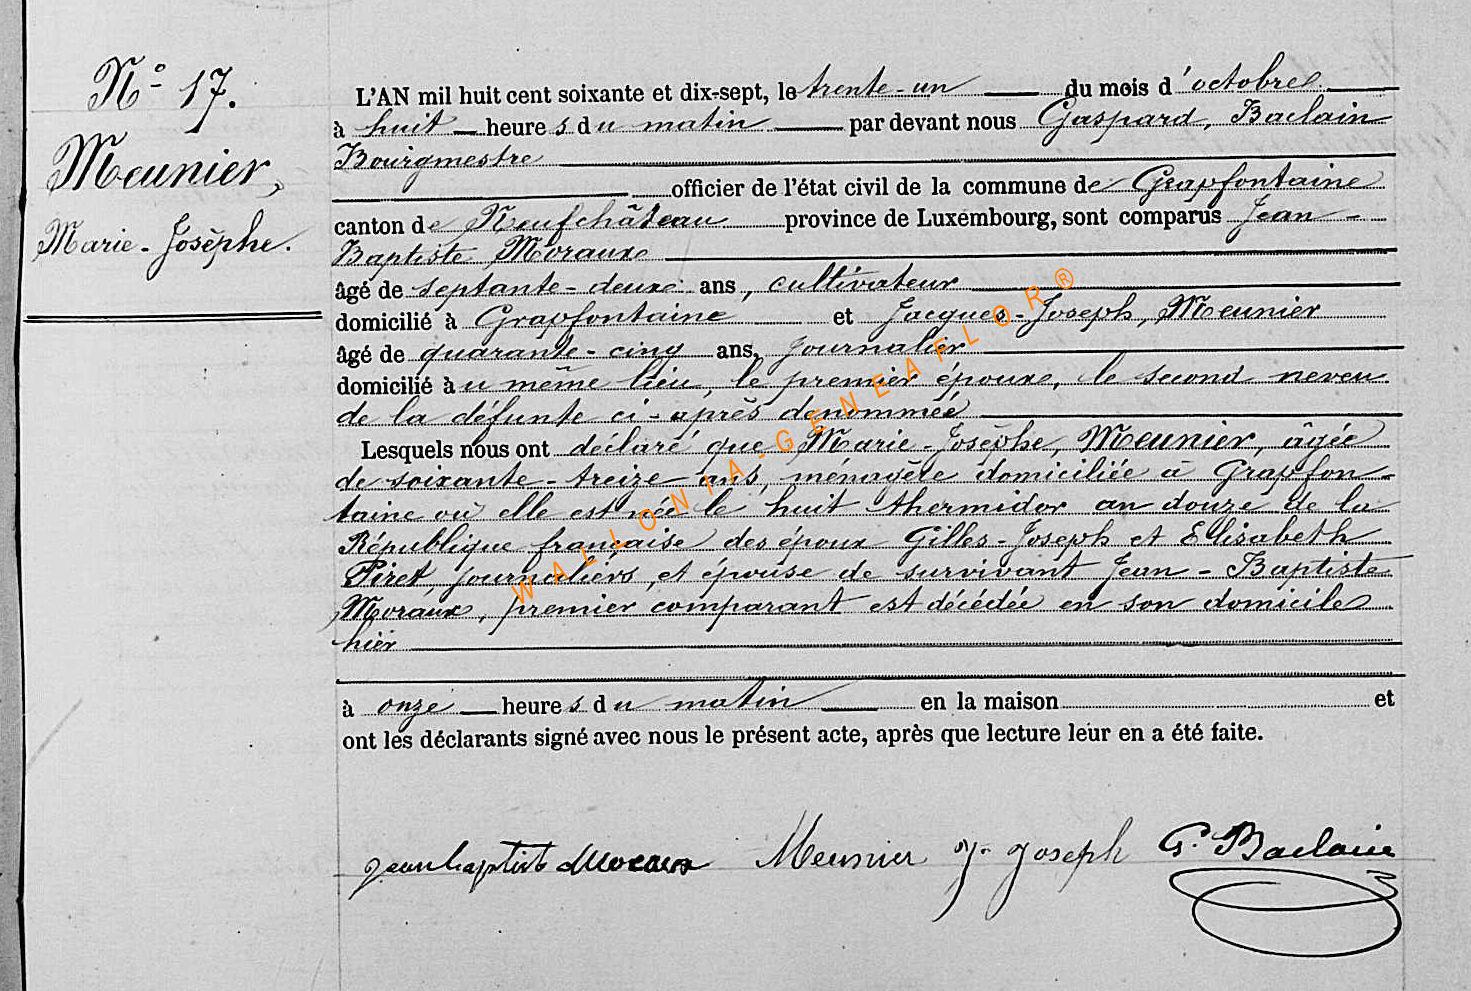 N° 17.
Meunier,
Marie-Josèphe.
L'AN mil huit cent soixante et dix-sept, le trente-un du mois d'octobre
à huit heures du matin par devant nous Gaspard, Baclain
Bourgmestre
officier de l'état civil de la commune de Grapfontaine
canton de Neufchâteau province de Luxembourg, sont comparus Jean-
Baptiste Moraux
âgé de septante-deux ans, cultivateur
domicilié à Grapfontaine et Jacques-Joseph, Meunier
âgé de quarante-cinq ans, journalier
domicilié au même lieu, le premier époux, le second neveu
de la défunte ci-après dénommée
Lesquels nous ont déclaré que Marie-Josèphe, Meunier, âgée
de soixante-treize ans, ménagère domiciliée à Grapfon-
taine où elle est née le huit thermidor an douze de la
République française des époux Gilles-Joseph et Elisabeth
Piret, journaliers, et épouse de survivant Jean-Baptiste
Moraux, premier comparant est décédée en son domicile
hier
à onze heures du matin en la maison et
ont les déclarants signé avec nous le présent acte, après que lecture leur en a été faite.
jean baptist Moraux Meunier J. Joseph G. Baclain
WALLONIA-GENEAFLOR®